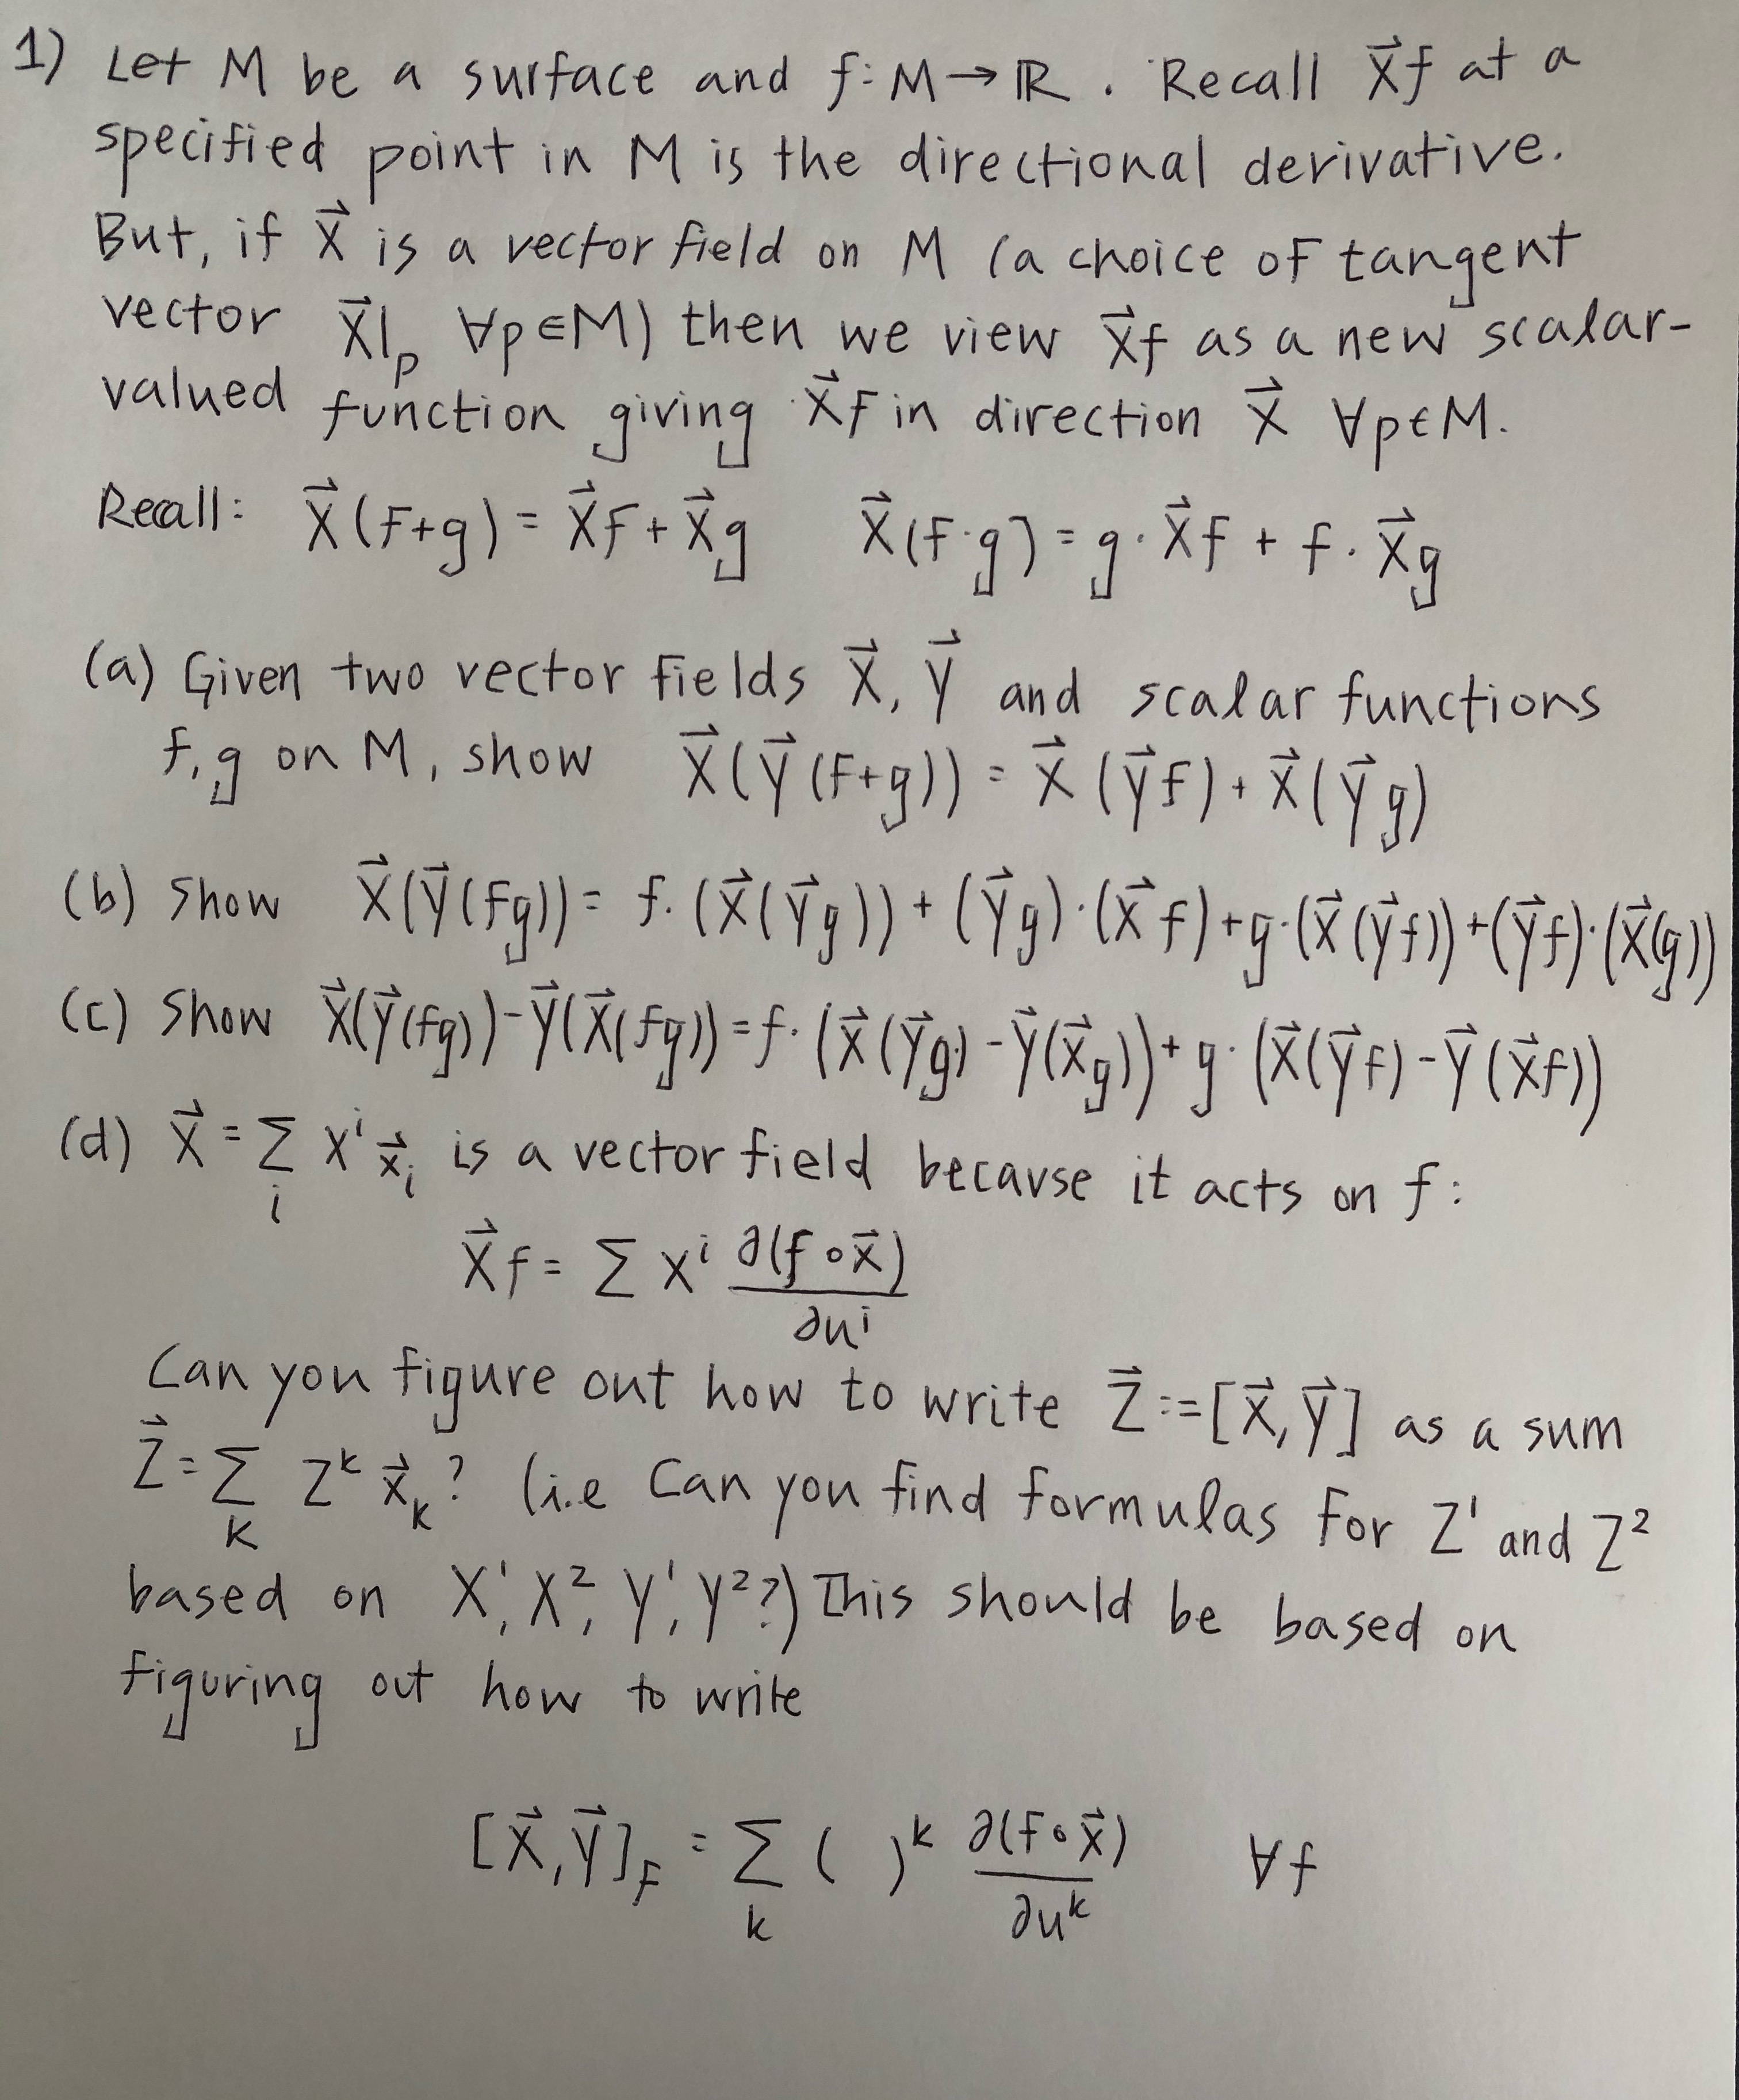 1) Let M be a surface and f: M → ℝ. Recall X⃗f at a
specified point in M is the directional derivative.
But, if X⃗ is a vector field on M (a choice of tangent
vector X⃗|ₚ ∀p∈M) then we view X⃗f as a new scalar-
valued function giving X⃗f in direction X⃗ ∀p∈M.
Recall: X⃗(f+g) = X⃗f + X⃗g X⃗(f·g) = g·X⃗f + f·X⃗g
(a) Given two vector fields X⃗, Y⃗ and scalar functions
f,g on M, show X⃗(Y⃗(f+g)) = X⃗(Y⃗f) + X⃗(Y⃗g)
(b) Show X⃗(Y⃗(fg)) = f·(X⃗(Y⃗g)) + (Y⃗g)·(X⃗f) + g·(X⃗(Y⃗f)) + (Y⃗f)·(X⃗(g))
(c) Show X⃗(Y⃗(fg)) - Y⃗(X⃗(fg)) = f·(X⃗(Y⃗g) - Y⃗(X⃗g)) + g·(X⃗(Y⃗f) - Y⃗(X⃗f))
(d) X⃗ = ∑ᵢ Xⁱ x⃗ᵢ is a vector field because it acts on f:
X⃗f = ∑ Xⁱ ∂(f∘x⃗)/∂uⁱ
Can you figure out how to write Z⃗ := [X⃗,Y⃗] as a sum
Z⃗ = ∑ₖ Zᵏ x⃗ₖ? (i.e Can you find formulas for Z¹ and Z²
based on X¹, X², Y¹, Y²?) This should be based on
figuring out how to write
[X⃗,Y⃗]f = ∑ₖ ( )ᵏ ∂(f∘x⃗)/∂uᵏ ∀f